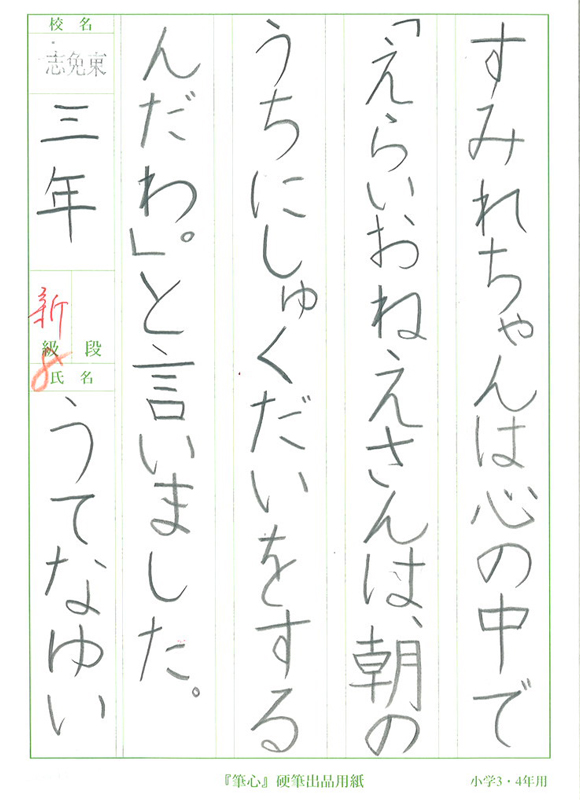 すみれちゃんは心の中で
「えらいおねえさんは、朝の
うちにしゅくだいをする
んだわ。」と言いました。
校名
志免東
三年
新
級 段
8
氏名
うてなゆい
『筆心』硬筆出品用紙
小学3・4年用